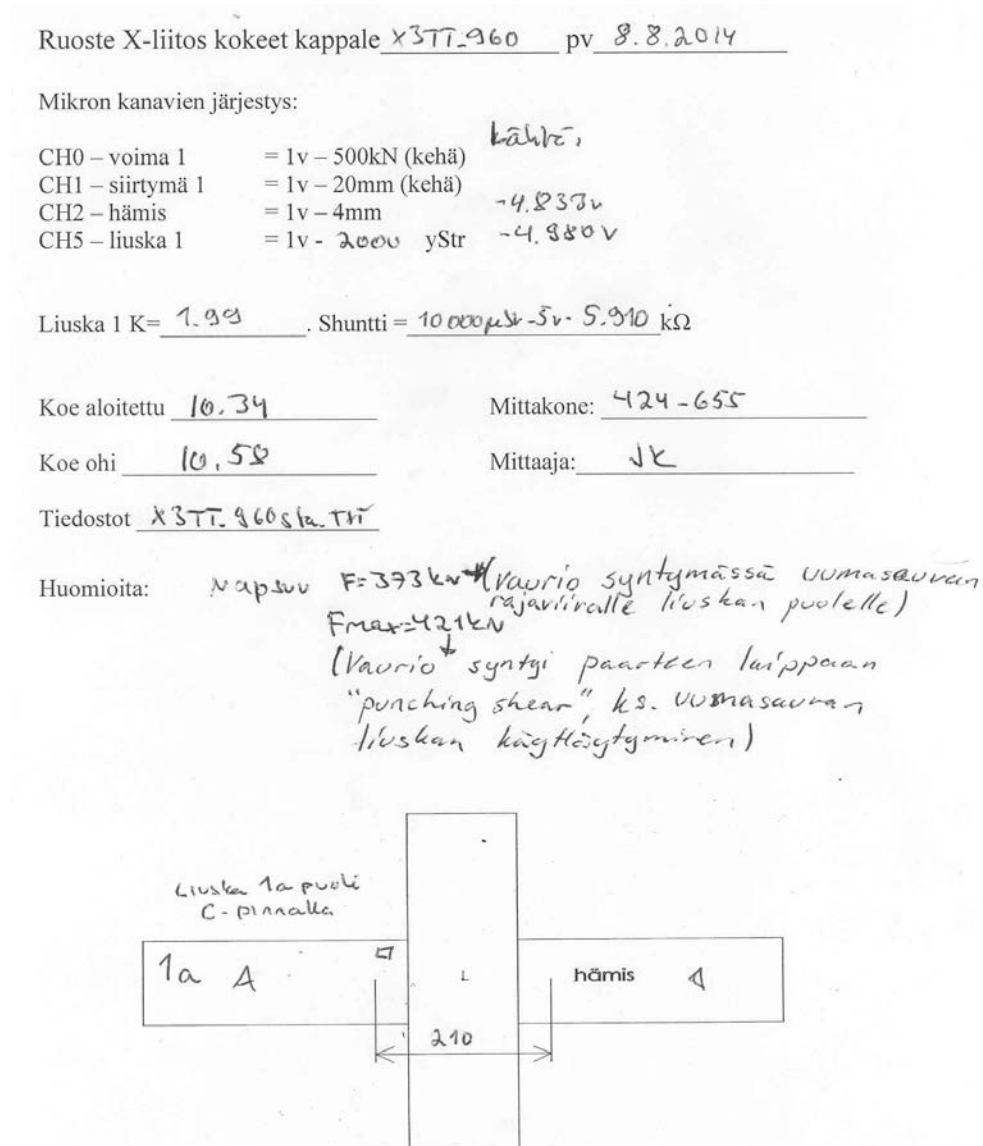 Ruoste X-liitos kokeet kappale X3TT_960 pv 8.8.2014
Mikron kanavien järjestys:
Lähtö,
CH0 – voima 1 = 1v – 500kN (kehä)
CH1 – siirtymä 1 = 1v – 20mm (kehä)
CH2 – hämis = 1v – 4mm -4.833v
CH5 – liuska 1 = 1v - 2000 yStr -4.980v
Liuska 1 K= 1.99 . Shuntti = 10 000µStr - 5v - 5.910 kΩ
Koe aloitettu 10.34 Mittakone: 424-655
Koe ohi 10.58 Mittaaja: JK
Tiedostot X3TT_960
Huomioita: Napsuu F=373kN (vaurio syntymässä uumasauvan
rajaviivalle liuskan puolelle)
Fmax=421kN
(Vaurio syntyi paarteen laippaan
"punching shear", ks. uumasauvan
liuskan käyttäytyminen)
Liuska 1a puoli
C-pinnalla
1a A L hämis
210